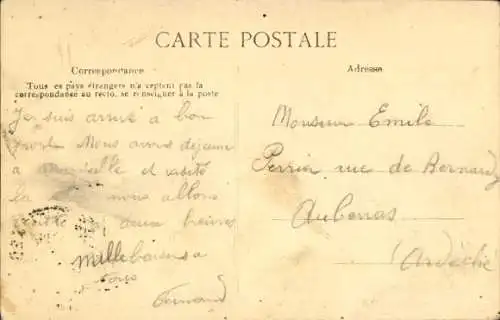 CARTE POSTALE
Correspondance
Tous es pays étrangers n'a ceptent pas la
correspondanse au recto, se renseigner à la poste
Je suis arrivé a bon
port Nous avons déjeuné
a et visité
la nous allons
deux heures
Mille baisers a
tous
Fernand
Adresse
Monsieur Emile
Perrin rue de Bernard
Aubenas
Ardèche